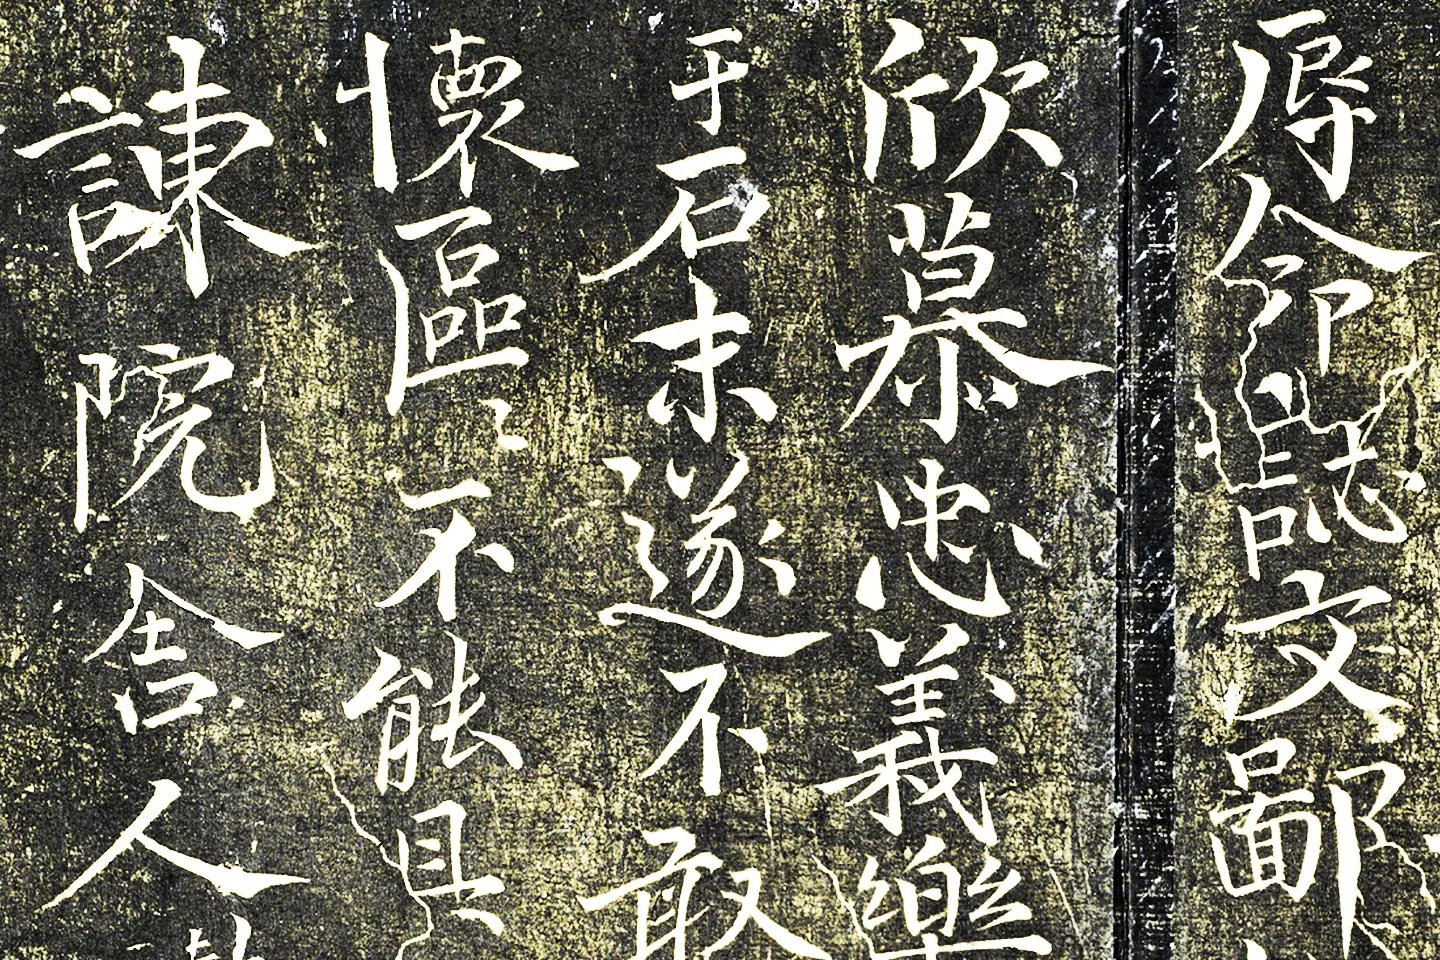 辱命誌文鄙
欣慕忠義樂
于石末遂不敢
懷區〻不能具
諫院舍人